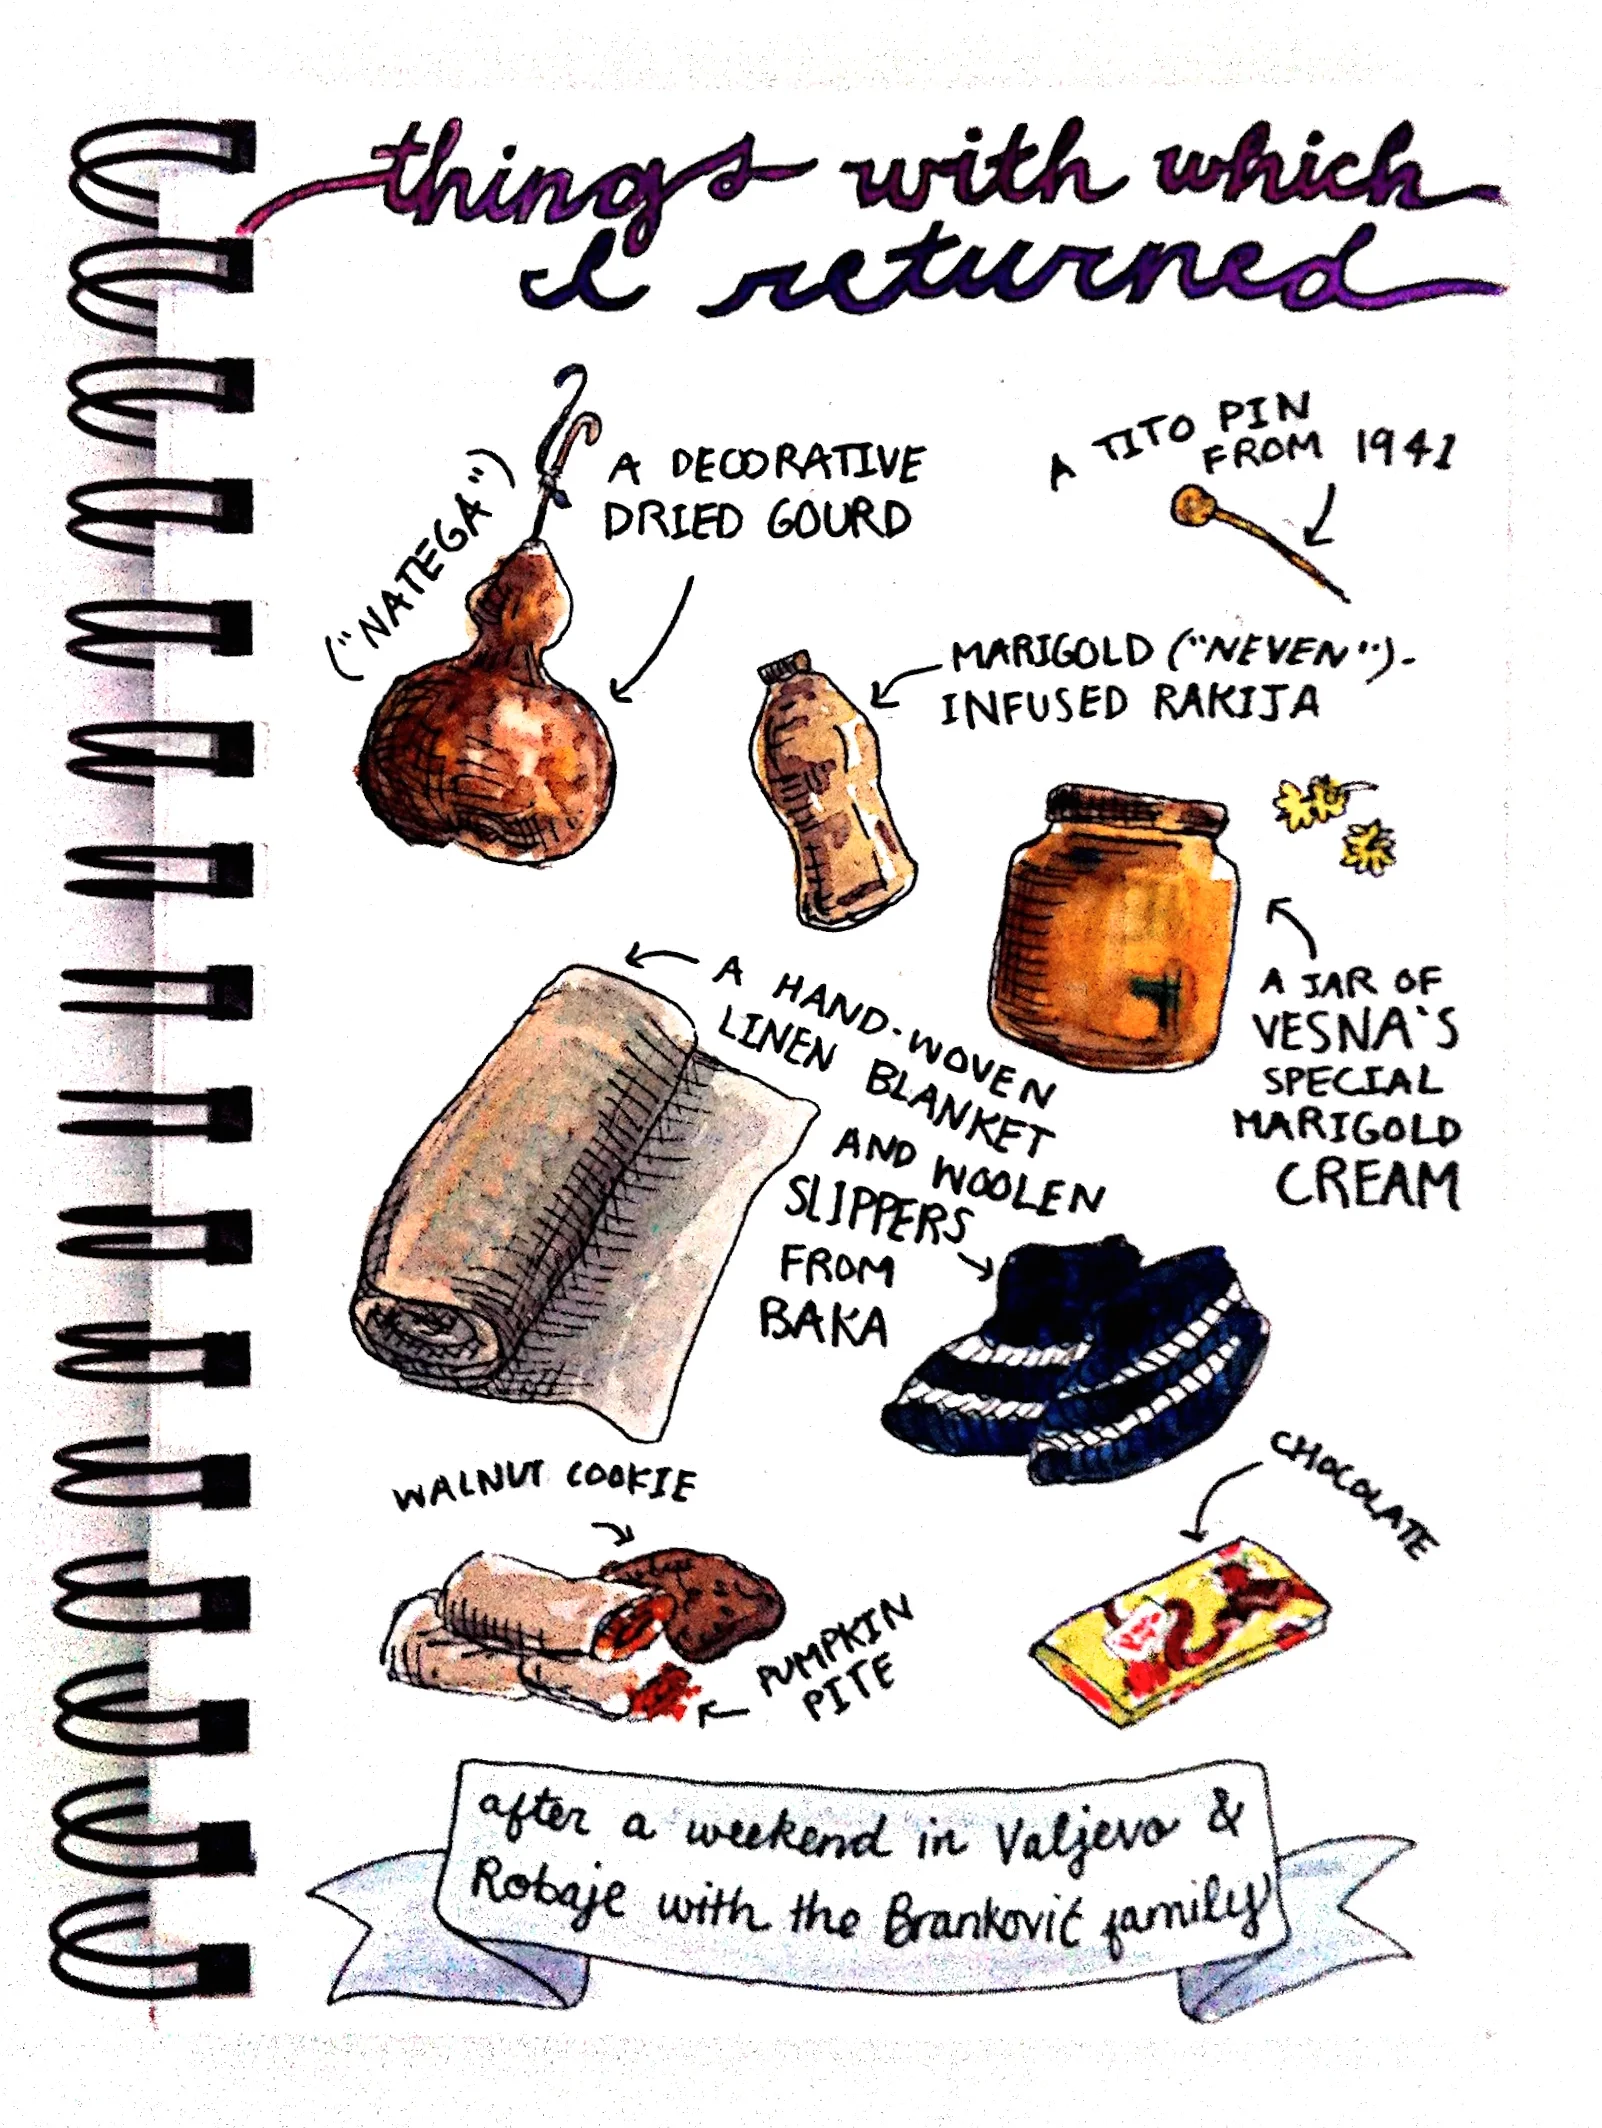 things with which
I returned
("NATEGA")
A DECORATIVE
DRIED GOURD
A TITO PIN
FROM 1941
MARIGOLD ("NEVEN")-
INFUSED RAKIJA
A JAR OF
VESNA'S
SPECIAL
MARIGOLD
CREAM
A HAND-WOVEN
LINEN BLANKET
AND WOOLEN
SLIPPERS
FROM
BAKA
WALNUT COOKIE
PUMPKIN
PITE
CHOCOLATE
after a weekend in Valjevo &
Robaje with the Branković family